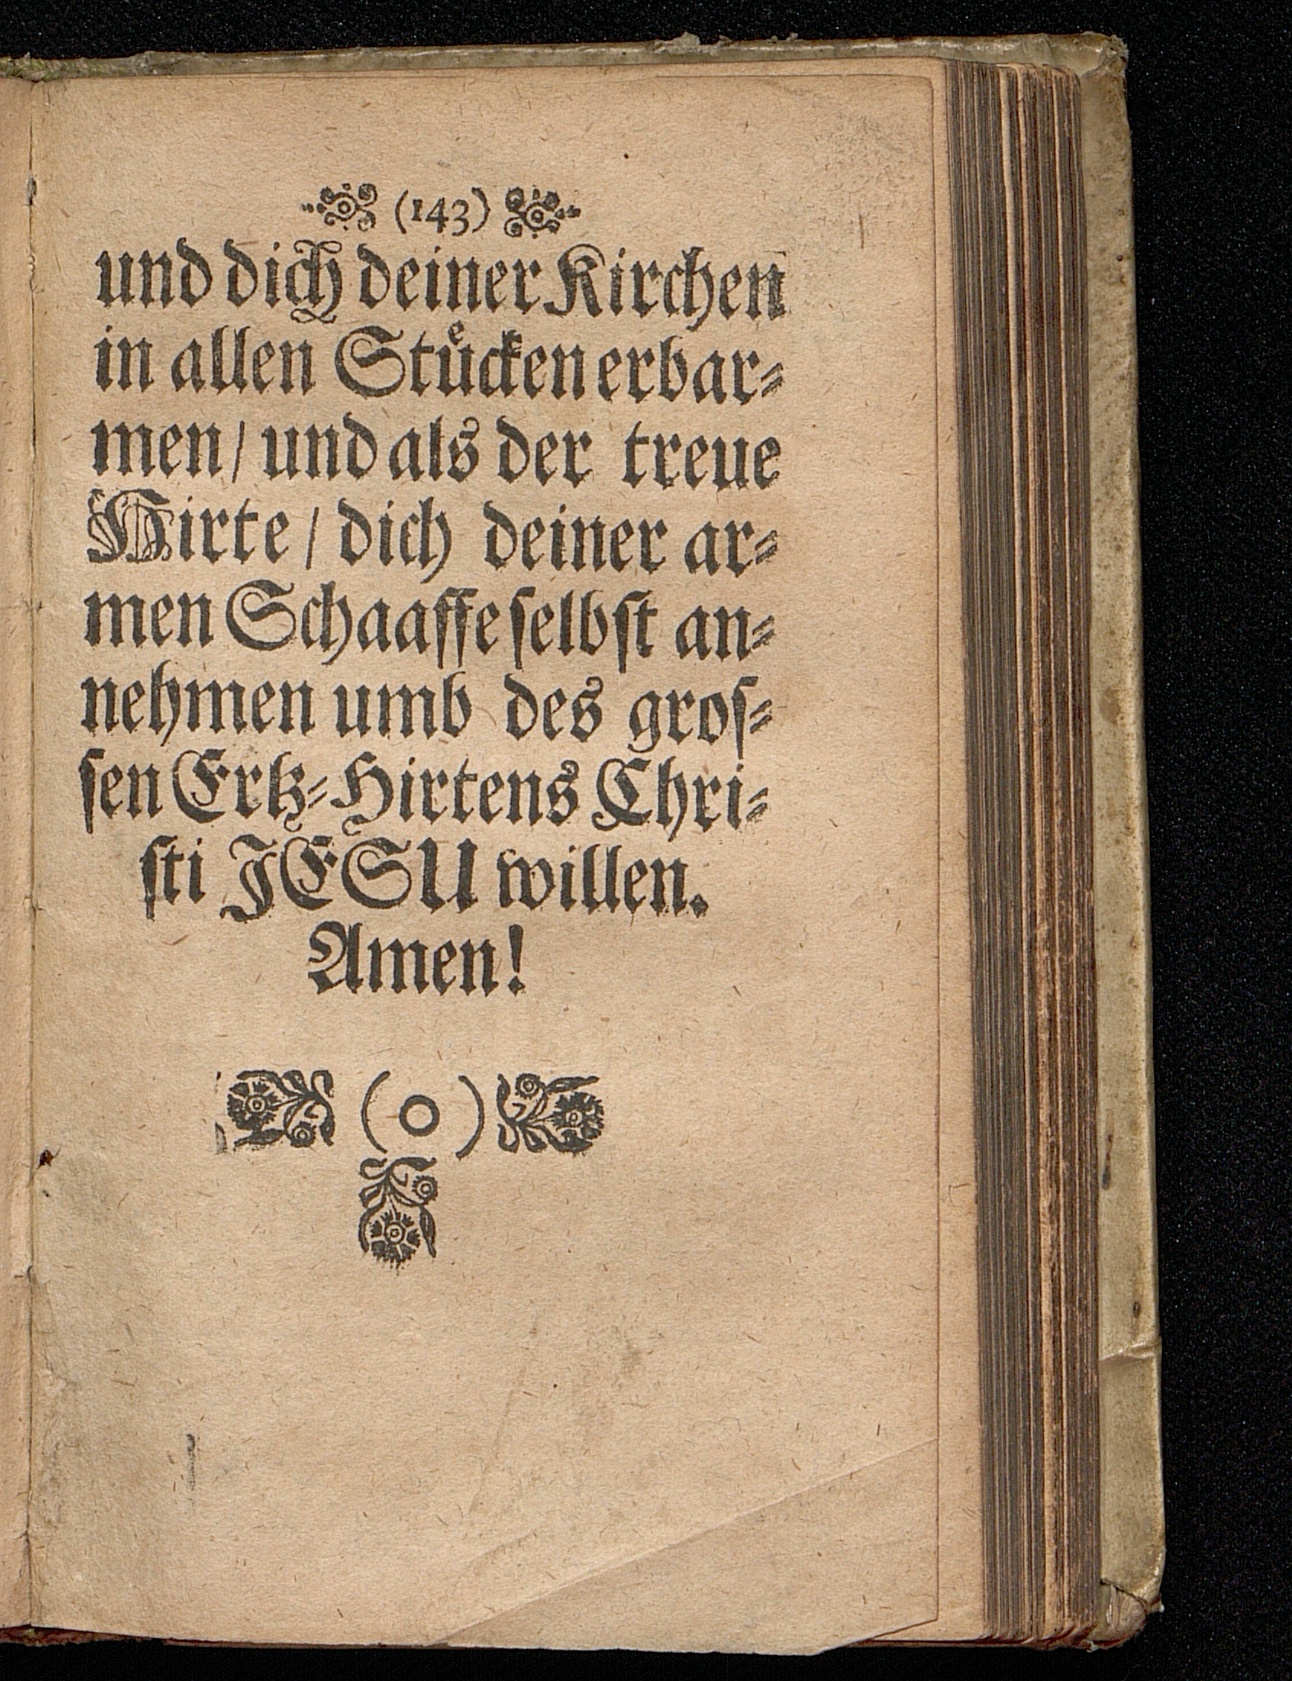 (143)
und dich deiner Kirchen
in allen Stuͤcken erbar⸗
men/ und als der treue
Hirte/ dich deiner ar⸗
men Schaaffe ſelbſt an⸗
nehmen umb des groſ⸗
ſen Ertz⸗Hirtens Chri⸗
ſti JESU willen.
Amen!
(o)